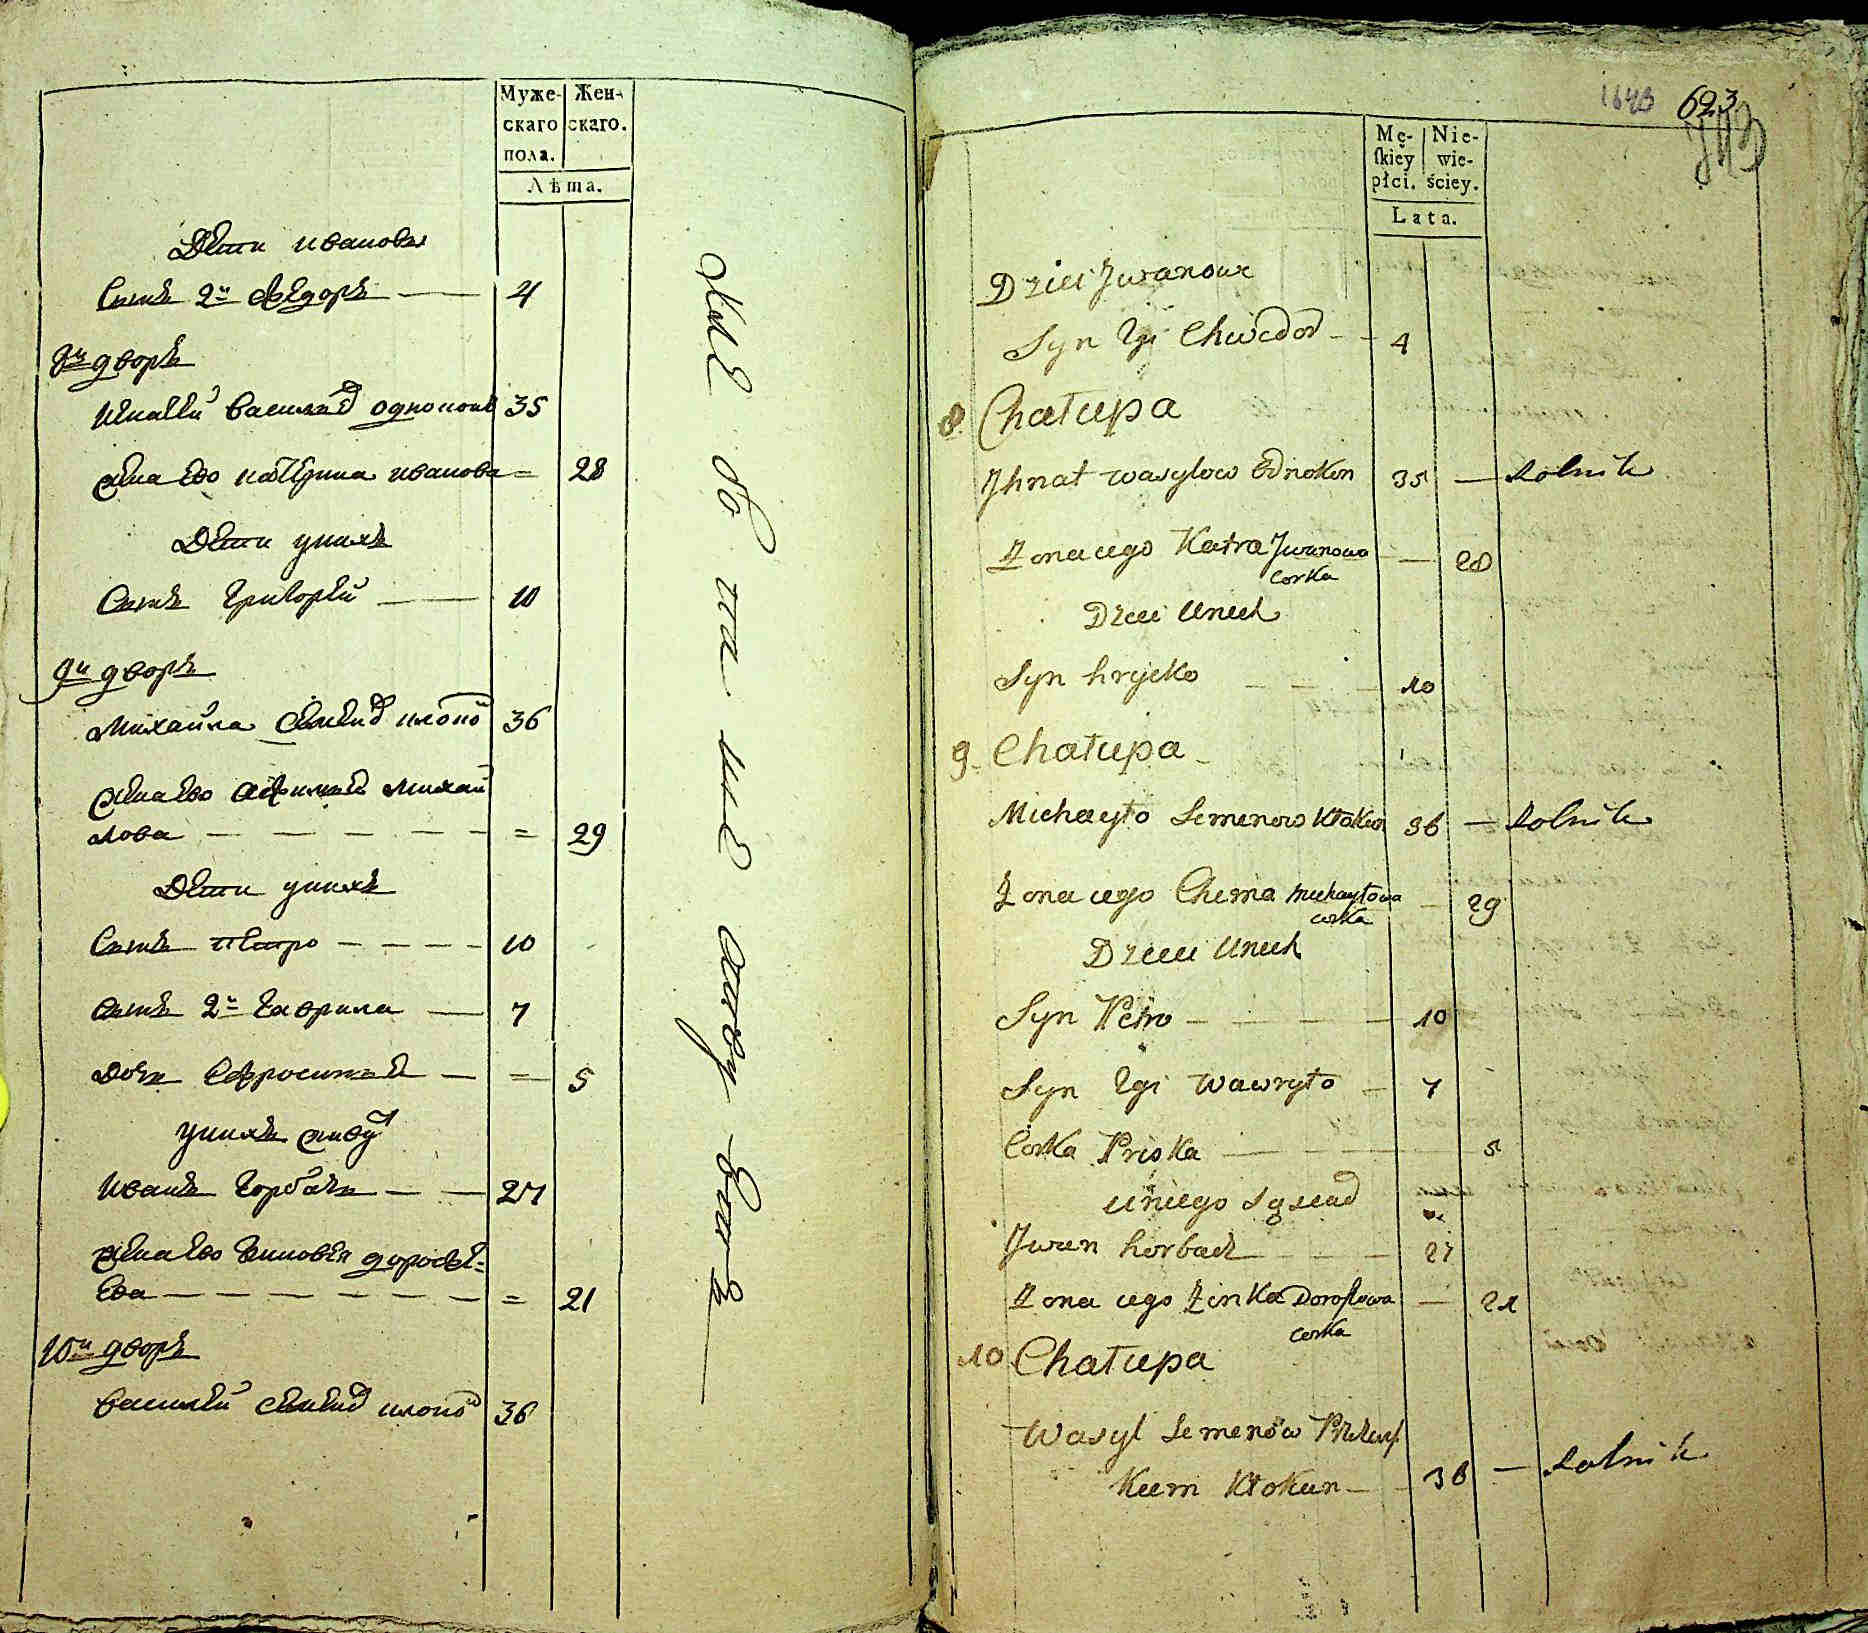 Муже-
скаго
пола.
Жен-
скаго.
Лѣта.
Дети ивановы
Сынъ 2й Федоръ — 4
8й дворъ
Игнатей Василиев одноконъ 35
жена ево катерина иванова = 28
Дети у нихъ
Сынъ Григорей — 10
9й дворъ
Михайла Семенов 36
жена ево Михай
лова — — — — — = 29
Дети у нихъ
Сынъ Петро — — — — 10
сынъ 2й Гаврила — 7
дочь Ефросинья — = 5
у нихъ живут
Иванъ Горбачь — — 27
жена ево Зиновья дорофе=
ева — — — — — — = 21
10й дворъ
Василей Семенов 36
623
1643
Mę-
skiey
płci.
Nie-
wie-
ściey.
Lata.
Dzieci Jwanowe
Syn 2gi Chwedor - - 4
8 Chałupa
Jhnat wasylow Ednokon 35 — Rolnik
Żona iego Katra Jwanowa — 28
Corka
Dzieci Unich
Syn hrycko — — — 10
9. Chałupa
Michayło Semenow Kłokun 36 — Rolnik
Żona iego Chima Michayłowa — 29
corka
Dzieci Unich
Syn Petro — — — — 10
Syn 2gi Wawryło — 7
Corka Priska — — — — 5
uniego Sąsiad
Jwan horbacz — — — 27
Żona iego Zinka Dorofiowa — 21
Corka
10 Chałupa
Wasyl Semenow Przezwis
kiem Kłokun — - 36 — Rolnik